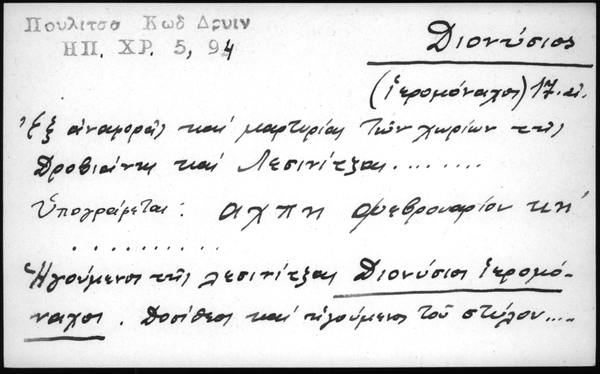 Πουλιτσα Κωδ Δρυιν
ΗΠ. ΧΡ. 5, 94
Διονύσιος
(ἱερομόναχος) 17. αἰ.
Ἐξ ἀναφορᾶς καὶ μαρτυρίας τῶν χωρίων τῆς
Δροβιάνης καὶ Λεσινίτζας........
Ὑπογράφεται: αχπη φεβρουαρίου κη'
..........
Ἡγούμενος τῆς λεσινίτζας Διονύσιος ἱερομό-
ναχος. Δοσίθεος καὶ ἡγούμενος τοῦ στύλου.....